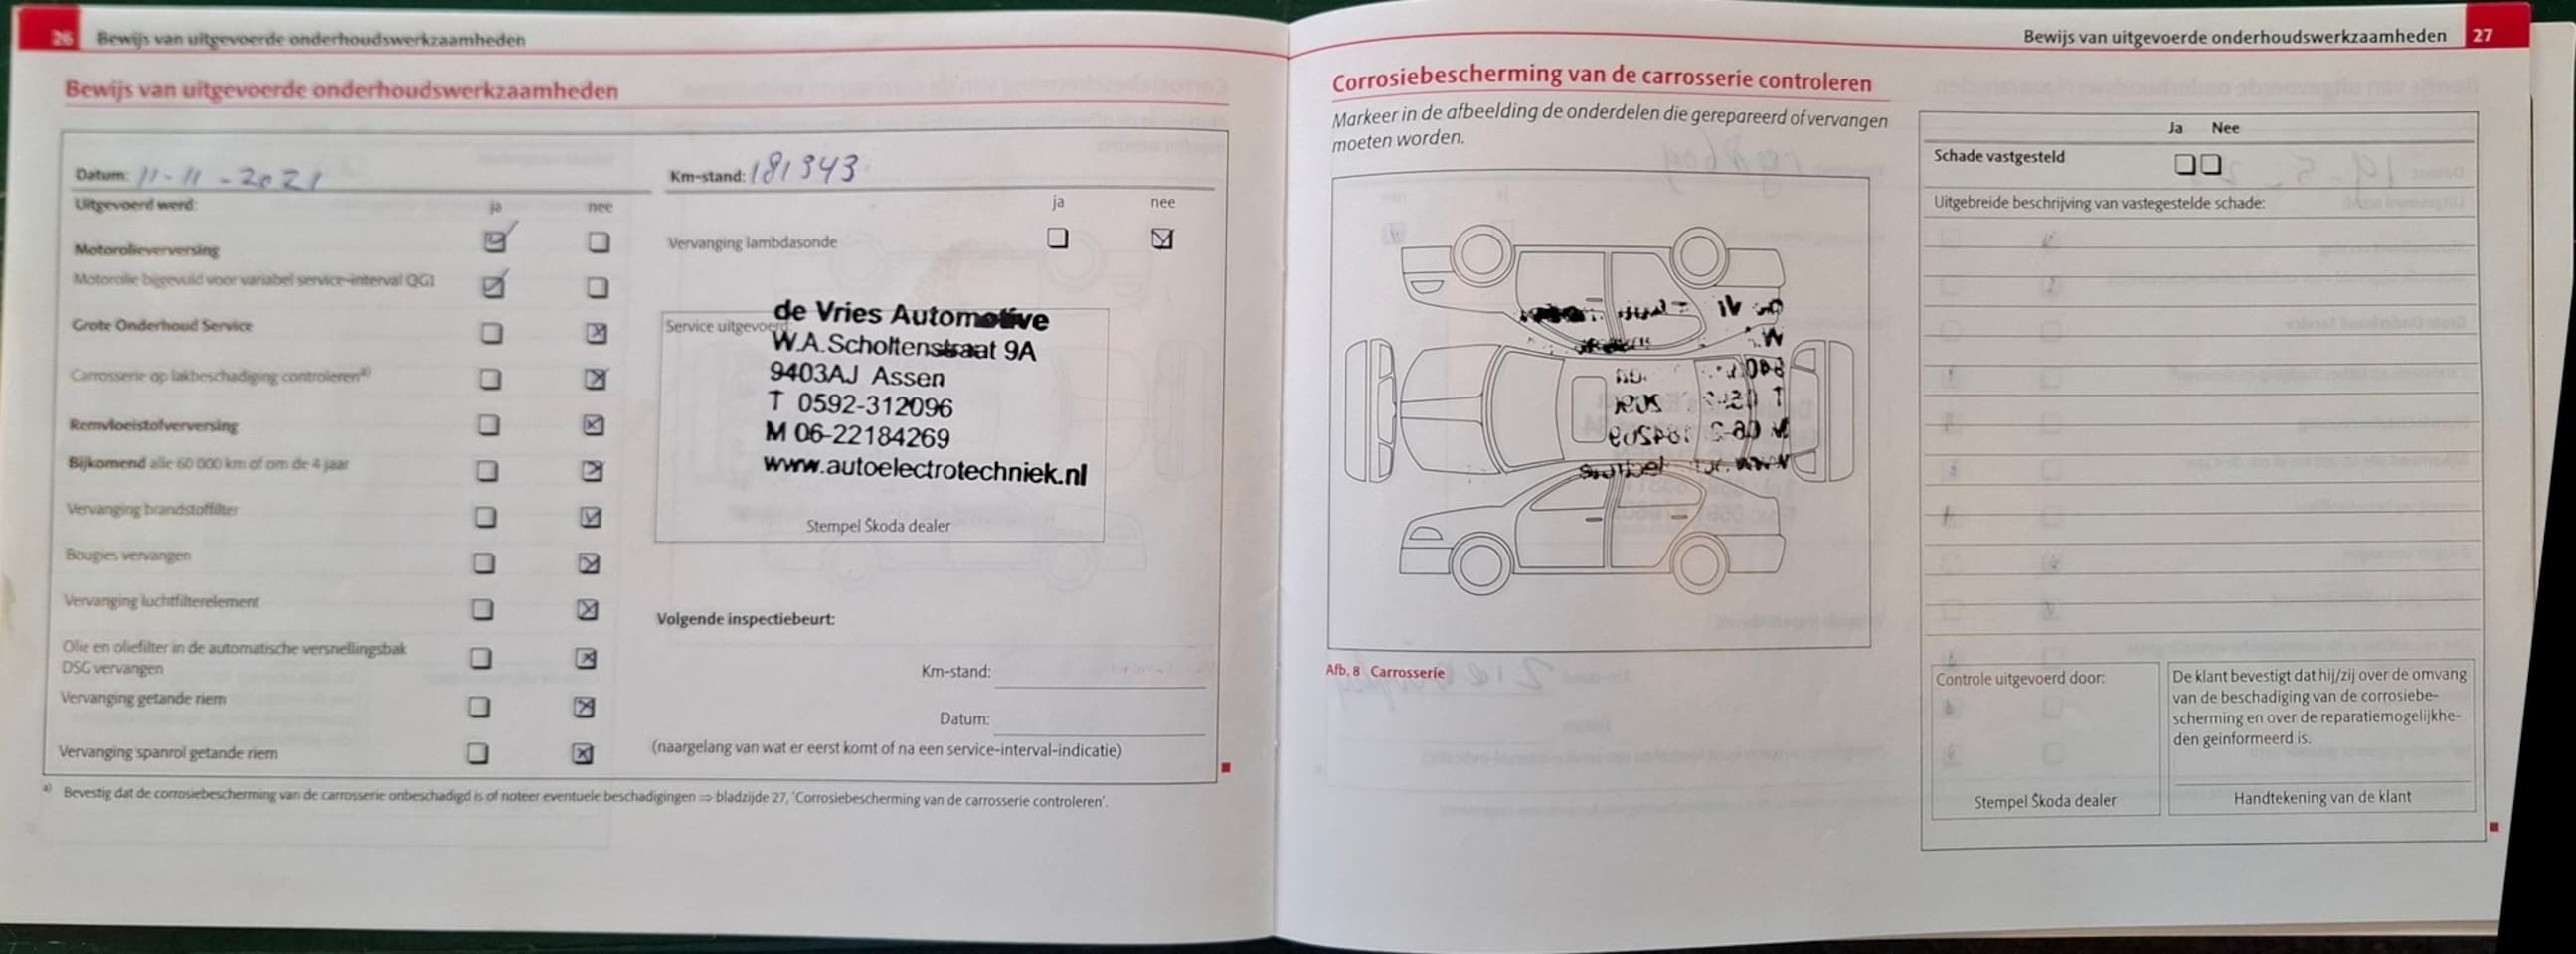 26 Bewijs van uitgevoerde onderhoudswerkzaamheden
Bewijs van uitgevoerde onderhoudswerkzaamheden
Datum: 11-11-2021
Km-stand: 181343
Uitgevoerd werd: ja nee
Motorolieverversing
Motorolie bijgevuld voor variabel service-interval QG1
Grote Onderhoud Service
Carrosserie op lakbeschadiging controleren a)
Remvloeistofverversing
Bijkomend alle 60 000 km of om de 4 jaar
Vervanging brandstoffilter
Bougies vervangen
Vervanging luchtfilterelement
Olie en oliefilter in de automatische versnellingsbak
DSG vervangen
Vervanging getande riem
Vervanging spanrol getande riem
ja nee
Vervanging lambdasonde
Service uitgevoerd:
de Vries Automotive
W.A.Scholtenstraat 9A
9403AJ Assen
T 0592-312096
M 06-22184269
www.autoelectrotechniek.nl
Stempel Škoda dealer
Volgende inspectiebeurt:
Km-stand:
Datum:
(naargelang van wat er eerst komt of na een service-interval-indicatie)
a) Bevestig dat de corrosiebescherming van de carrosserie onbeschadigd is of noteer eventuele beschadigingen ⇒ bladzijde 27, 'Corrosiebescherming van de carrosserie controleren'.
Bewijs van uitgevoerde onderhoudswerkzaamheden 27
Corrosiebescherming van de carrosserie controleren
Markeer in de afbeelding de onderdelen die gerepareerd of vervangen
moeten worden.
Afb. 8 Carrosserie
Ja Nee
Schade vastgesteld
Uitgebreide beschrijving van vastegestelde schade:
Controle uitgevoerd door:
Stempel Škoda dealer
De klant bevestigt dat hij/zij over de omvang
van de beschadiging van de corrosiebe-
scherming en over de reparatiemogelijkhe-
den geinformeerd is.
Handtekening van de klant